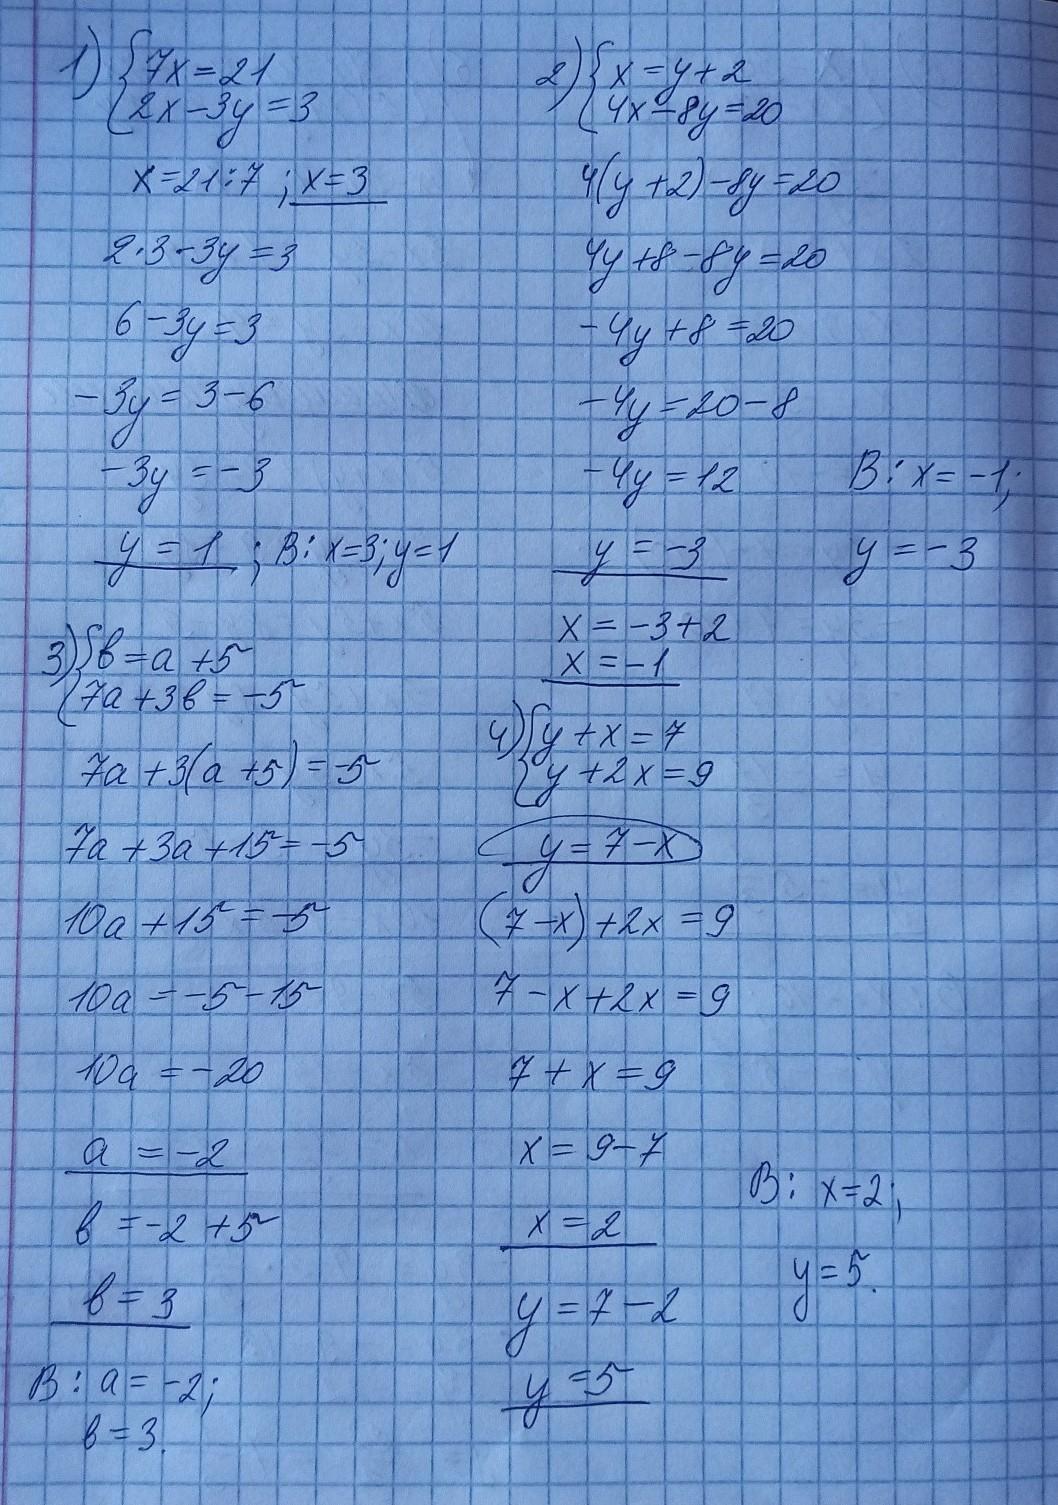 1) { 7x = 21
2x - 3y = 3
x = 21 : 7 ; x = 3
2 · 3 - 3y = 3
6 - 3y = 3
- 3y = 3 - 6
- 3y = - 3
y = 1 ; В: x = 3; y = 1
2) { x = y + 2
4x - 8y = 20
4(y + 2) - 8y = 20
4y + 8 - 8y = 20
- 4y + 8 = 20
- 4y = 20 - 8
- 4y = 12
y = - 3
x = - 3 + 2
x = - 1
В: x = - 1;
y = - 3
3) { в = a + 5
7a + 3в = - 5
7a + 3(a + 5) = - 5
7a + 3a + 15 = - 5
10a + 15 = - 5
10a = - 5 - 15
10a = - 20
a = - 2
в = - 2 + 5
в = 3
В: a = - 2;
в = 3.
4) { y + x = 7
y + 2x = 9
y = 7 - x
(7 - x) + 2x = 9
7 - x + 2x = 9
7 + x = 9
x = 9 - 7
x = 2
y = 7 - 2
y = 5
В: x = 2;
y = 5.